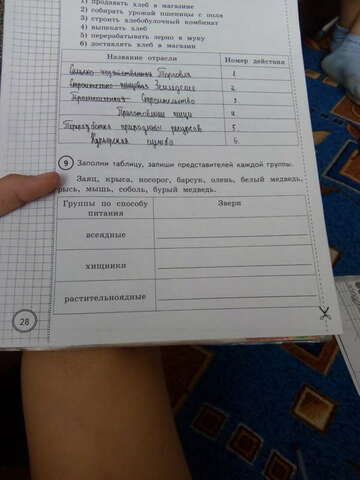 1) продавать хлеб в магазине
2) собирать урожай пшеницы с поля
3) строить хлебобулочный комбинат
4) выпекать хлеб
5) перерабатывать зерно в муку
6) доставлять хлеб в магазин
Название отрасли Номер действия
Торговля 1
Земледелие 2
Строительство 3
Приготовление пищи 4
природных ресурсов 5
6
9 Заполни таблицу, запиши представителей каждой группы.
Заяц, крыса, носорог, барсук, олень, белый медведь,
рысь, мышь, соболь, бурый медведь.
Группы по способу питания Звери
всеядные
хищники
растительноядные
28